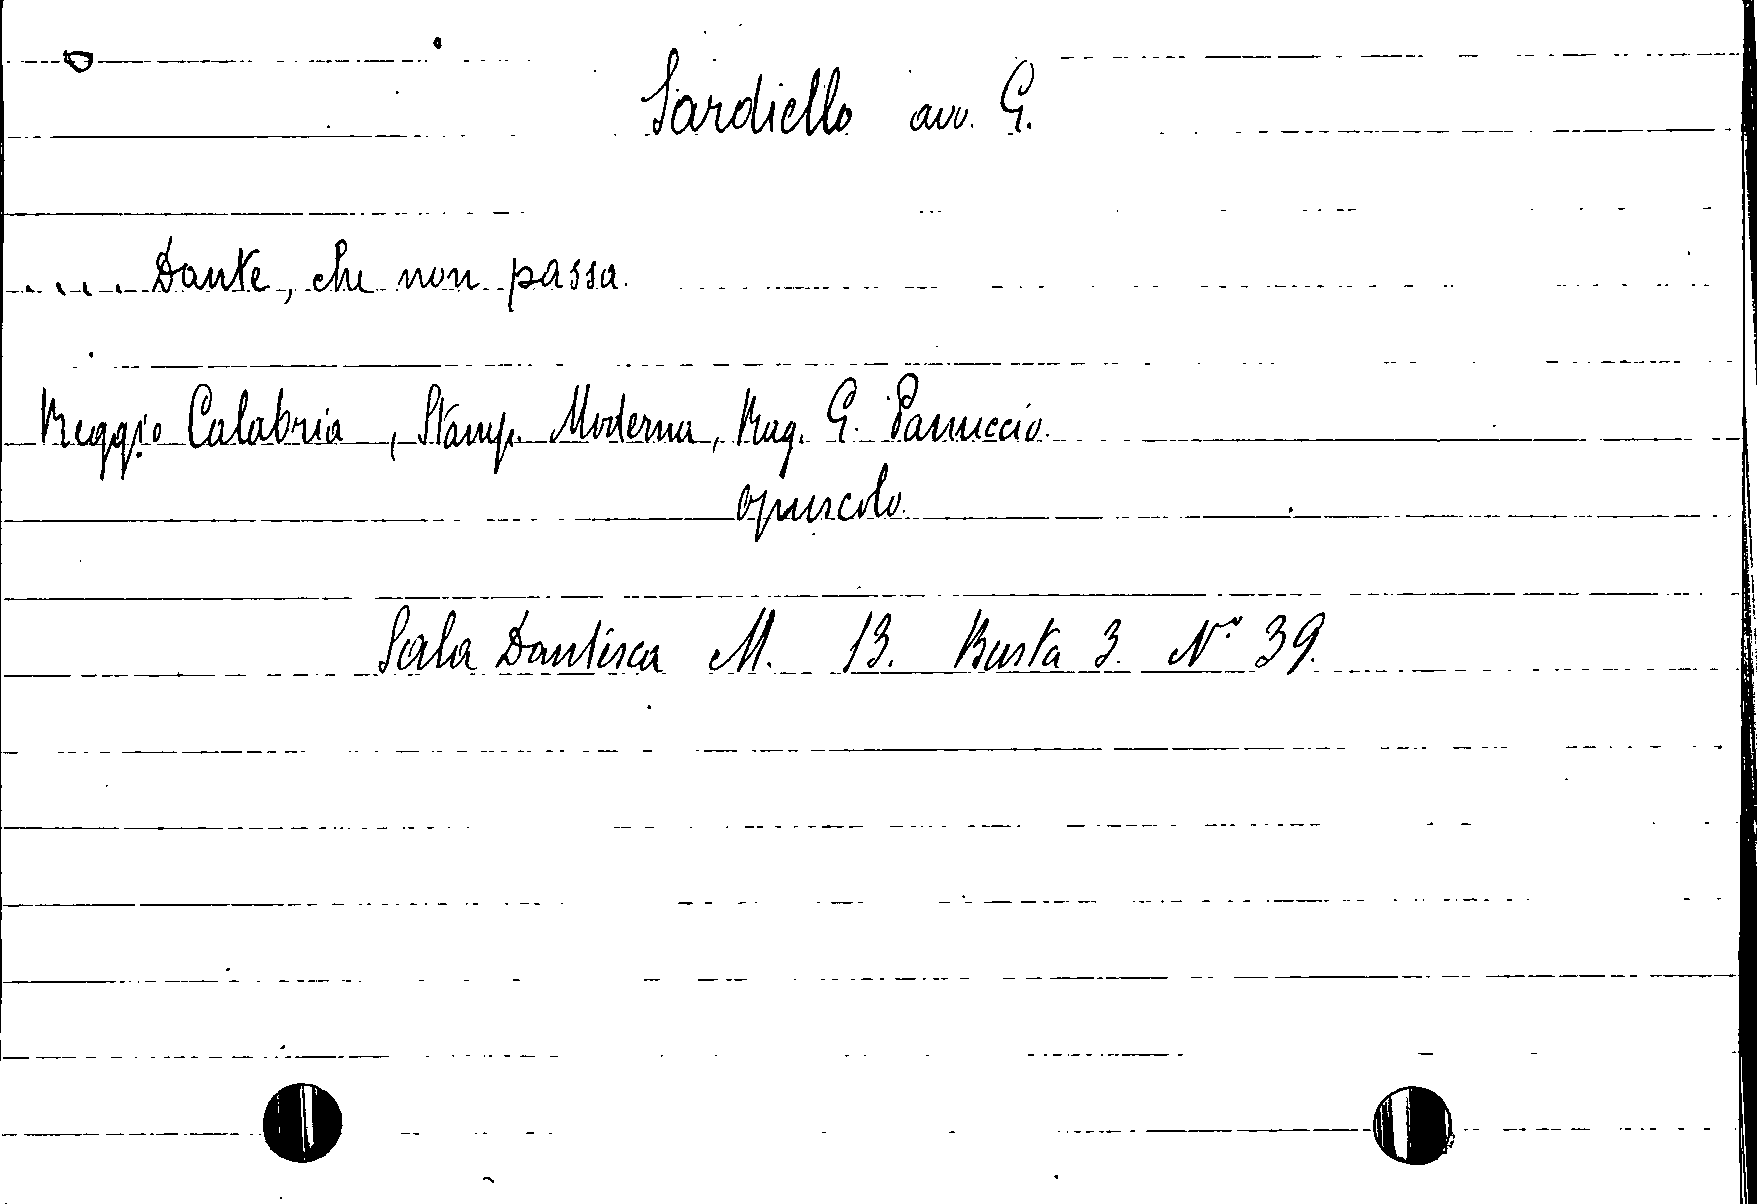 Sardiello avv. G.
.... Dante, che non passa.
Reggio Calabria, Stamp. Moderna, Rag. G. Panuccio.
opuscolo.
Sala Dantesca M. 13. Busta 3. N° 39.